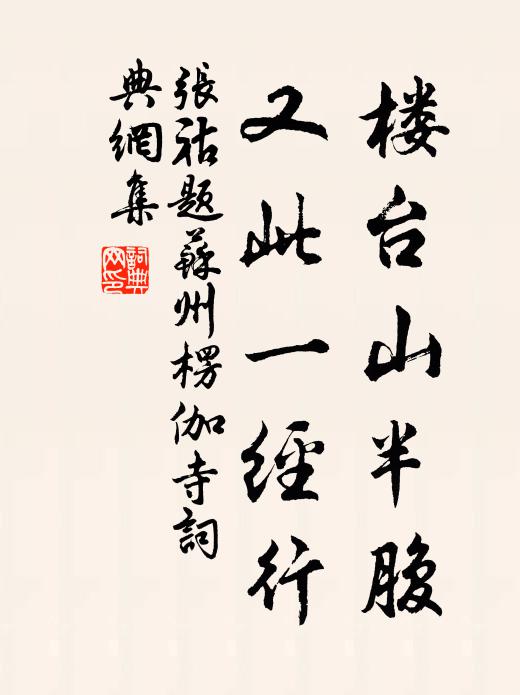 楼台山半腹
又此一經行
張祜題蘇州楞伽寺詞
典網集
詞典網印